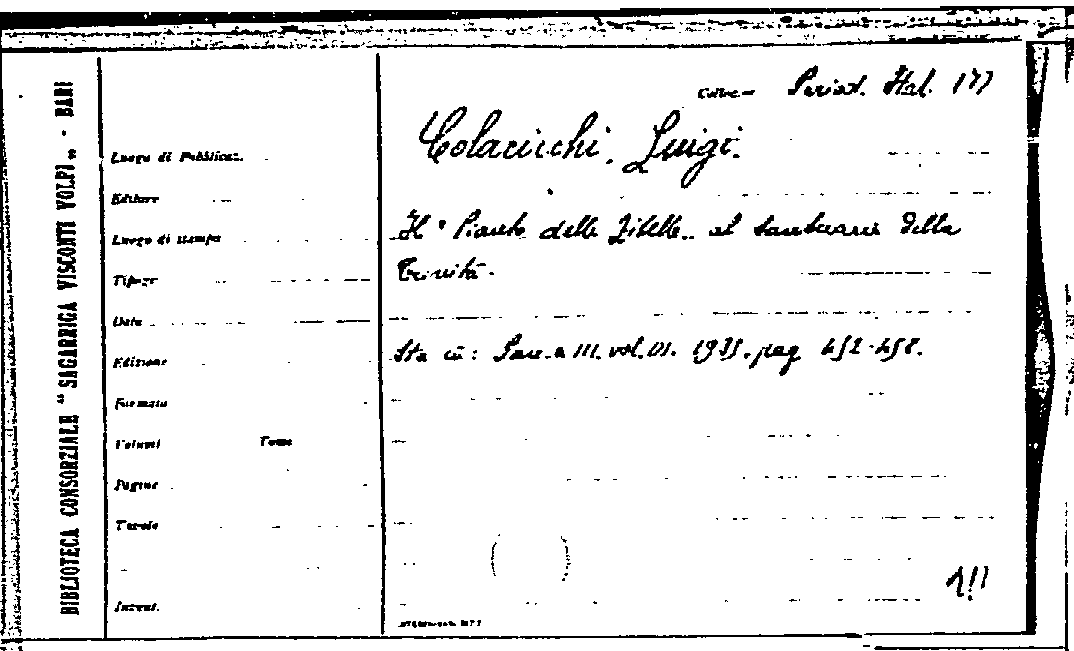 BIBLIOTECA CONSORZIALE "SAGARRIGA VISCONTI VOLPI" - BARI
Colloc.ne Period. Ital. 177
Colacicchi, Luigi.
Luogo di Pubblicaz.
Editore
Luogo di stampa
Il "Pianto delle Zitelle" al santuario della
Trinità.
Tipogr.
Data
Sta in: Lare. a III. vol. VI. 1935. pag. 452-458.
Edizione
Formato
Volumi Tomo
Pagine
Tavole
( )
Invent.